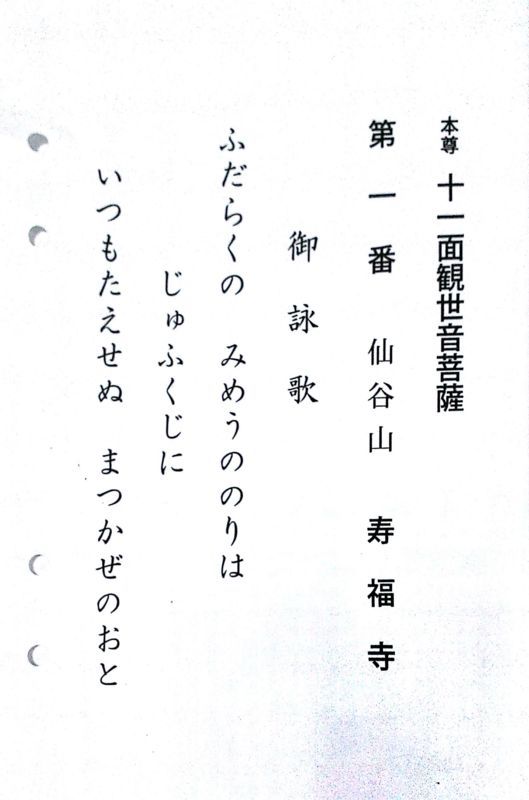 本尊 十一面観世音菩薩
第一番 仙谷山 寿福寺
御詠歌
ふだらくの みめうののりは
じゅふくじに
いつもたえせぬ まつかぜのおと